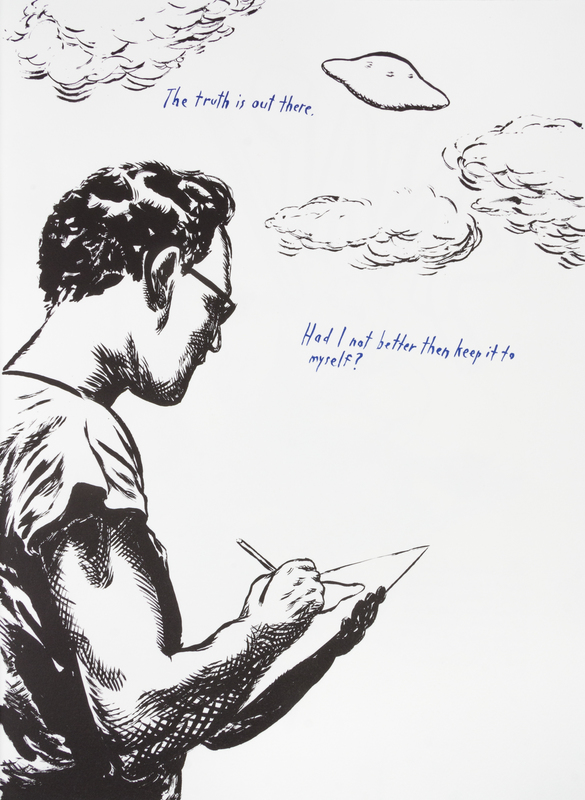 The truth is out there.
Had I not better then keep it to
myself?